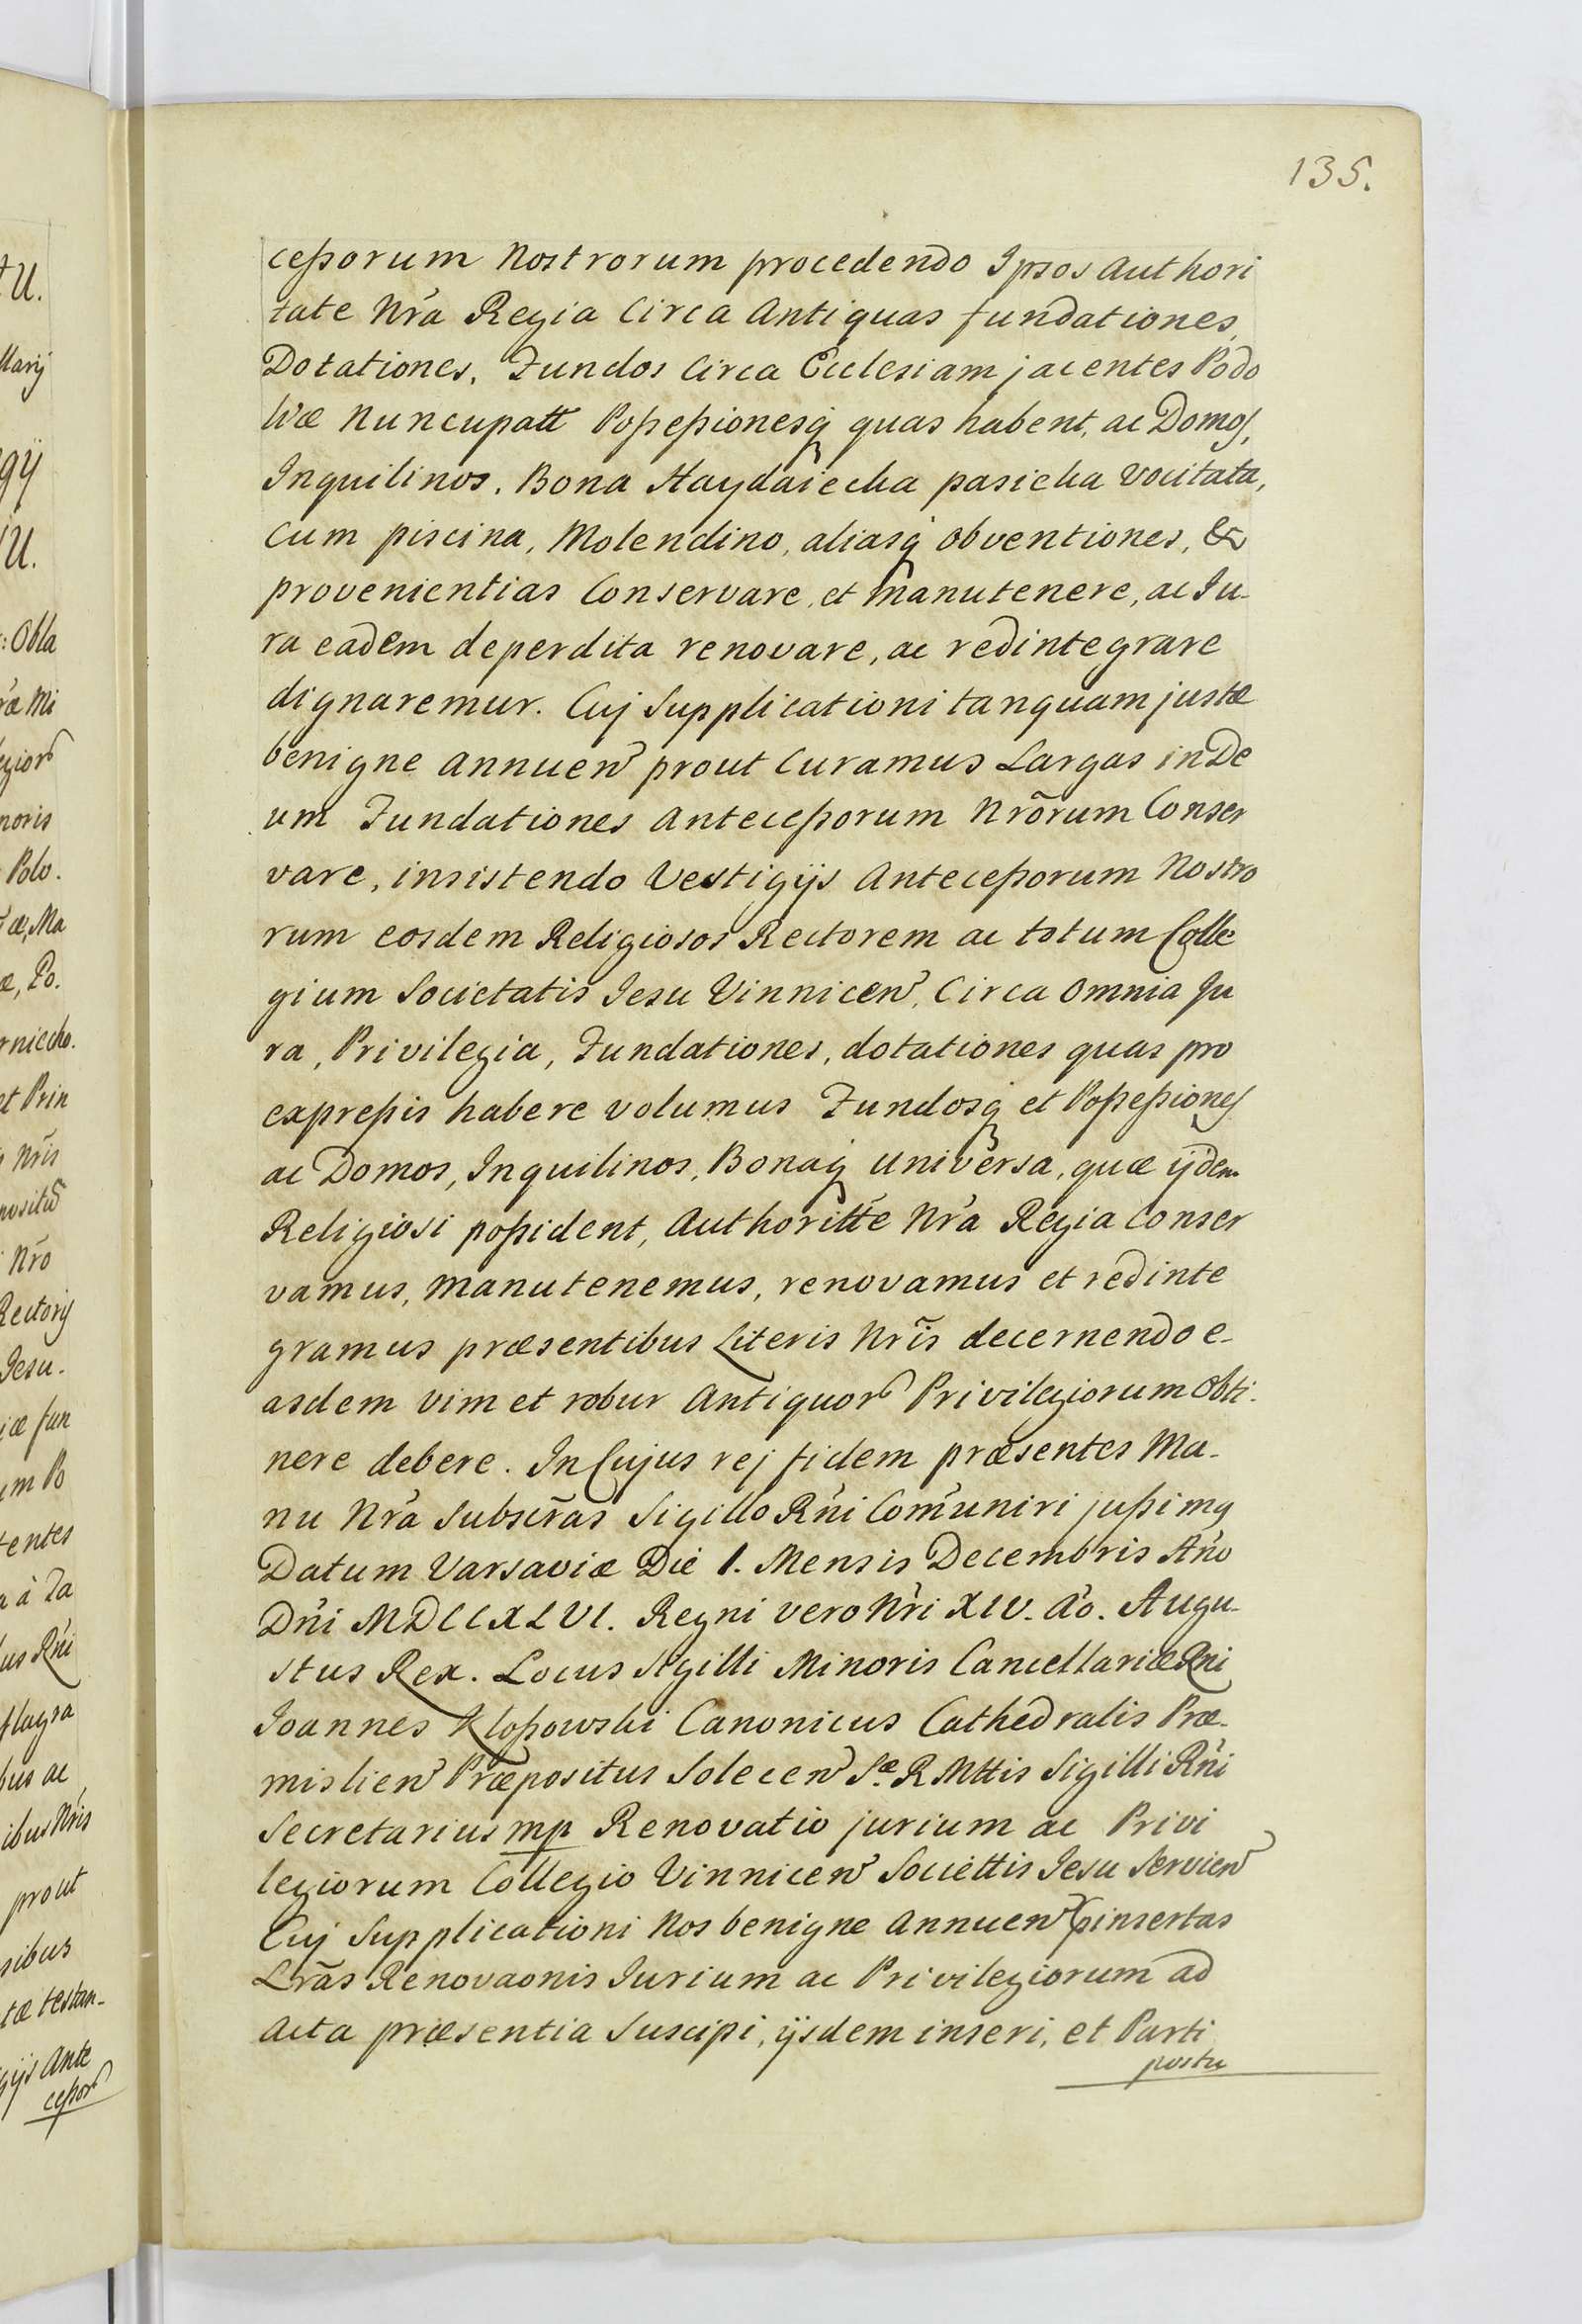 135.
ceßorum Nostrorum procedendo Ipsos Authori
tate Nr̃a Regia Circa Antiquas fundationes,
Dotationes, Fundos Circa Ecclesiam jacentes Podo
lwæ Nuncupatt Poßeßionesq quas habent, ac Domos,
Inquilinos, Bona Haydaiecka pasieka Vocitata,
Cum piscina, Molendino, aliasq obventiones, &
provenientias Conservare, et manutenere, ac Ju-
ra eadem deperdita renovare, ac redintegrare
dignaremur. Cuj Supplicationi tanquam justæ
benigne annuen prout Curamus Largas in De
um Fundationes Anteceßorum Nrõrum Conser
vare, insistendo Vestigijs Anteceßorum Nostro
rum eosdem Religiosos Rectorem ac totum Colle
gium Societatis Jesu Vinnicen, Circa Omnia Ju
ra, Privilegia, Fundationes, dotationes quas pro
expreßis habere volumus Fundosq et Poßeßiones
ac Domos, Inquilinos, Bonaq universa, quæ ijdem
Religiosi poßident, Authoritte Nr̃a Regia Conser
vamus, manutenemus, renovamus et redinte
gramus præsentibus Literis Nrĩs decernendo e-
asdem vim et robur Antiquor Privilegiorum Obti-
nere debere. In Cujus rej fidem præsentes Ma-
nu Nr̃a Subscrãs Sigillo Rñi Com̃uniri jußimq
Datum Varsaviæ Die 1. Mensis Decembris Añõ
Dñi MDCCXLVI. Regni vero Nr̃i XIV. Aõ. Augu-
stus Rex. Locus Sigilli Minoris Cancellariæ Rni
Joannes Kloßowski Canonicus Cathedralis Præ-
mislien Præpositus Solecen Sæ R Mttis Sigilli Rñi
Secretarius mp Renovatio jurium ac Privi
legiorum Collegio Vinnicen Societtis Jesu Servien
Cuj Supplicationi Nos benigne Annuen pinsertas
Lrãs Renovaonis Jurium ac Privilegiorum ad
Acta præsentia Suscipi, ijsdem inseri, et Parti
postu